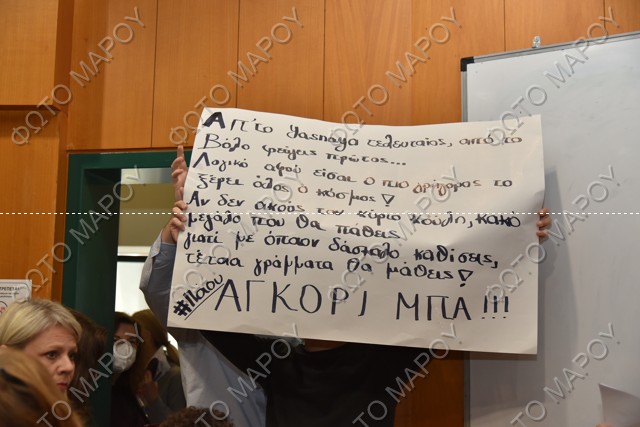 Απ' το Yasnaya τελευταίος, από το
Βόλο φεύγεις πρώτος...
Λογικό αφού είσαι ο πιο γρήγορος το
ξέρει όλος ο κόσμος!
Αν δεν ακούς τον κύριο Κούλη, κακό
μεγάλο που θα πάθεις
γιατί με όποιον δάσκαλο καθίσεις,
τέτοια γράμματα θα μάθεις!
ΑΓΚΟΡΙ ΜΠΑ!!!
ΦΩΤΟ ΜΑΡΟΥ